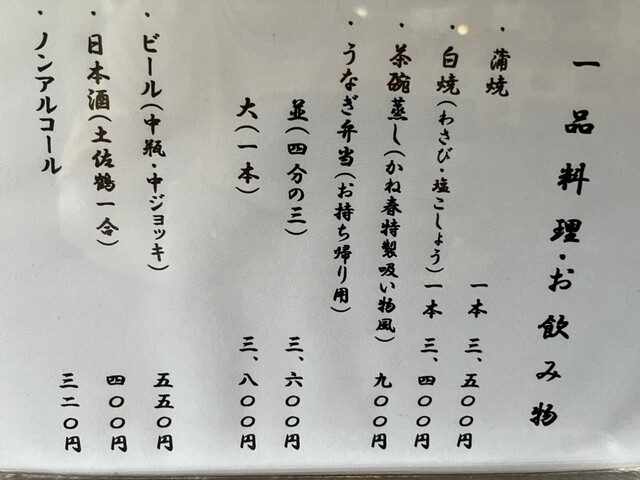 一品料理・お飲み物
・蒲焼 一本 三、五〇〇円
・白焼(わさび・塩こしょう) 一本 三、四〇〇円
・茶碗蒸し(かね春特製吸い物風) 九〇〇円
・うなぎ弁当(お持ち帰り用)
並(四分の三) 三、六〇〇円
大(一本) 三、八〇〇円
・ビール(中瓶・中ジョッキ) 五五〇円
・日本酒(土佐鶴一合) 四〇〇円
・ノンアルコール 三二〇円